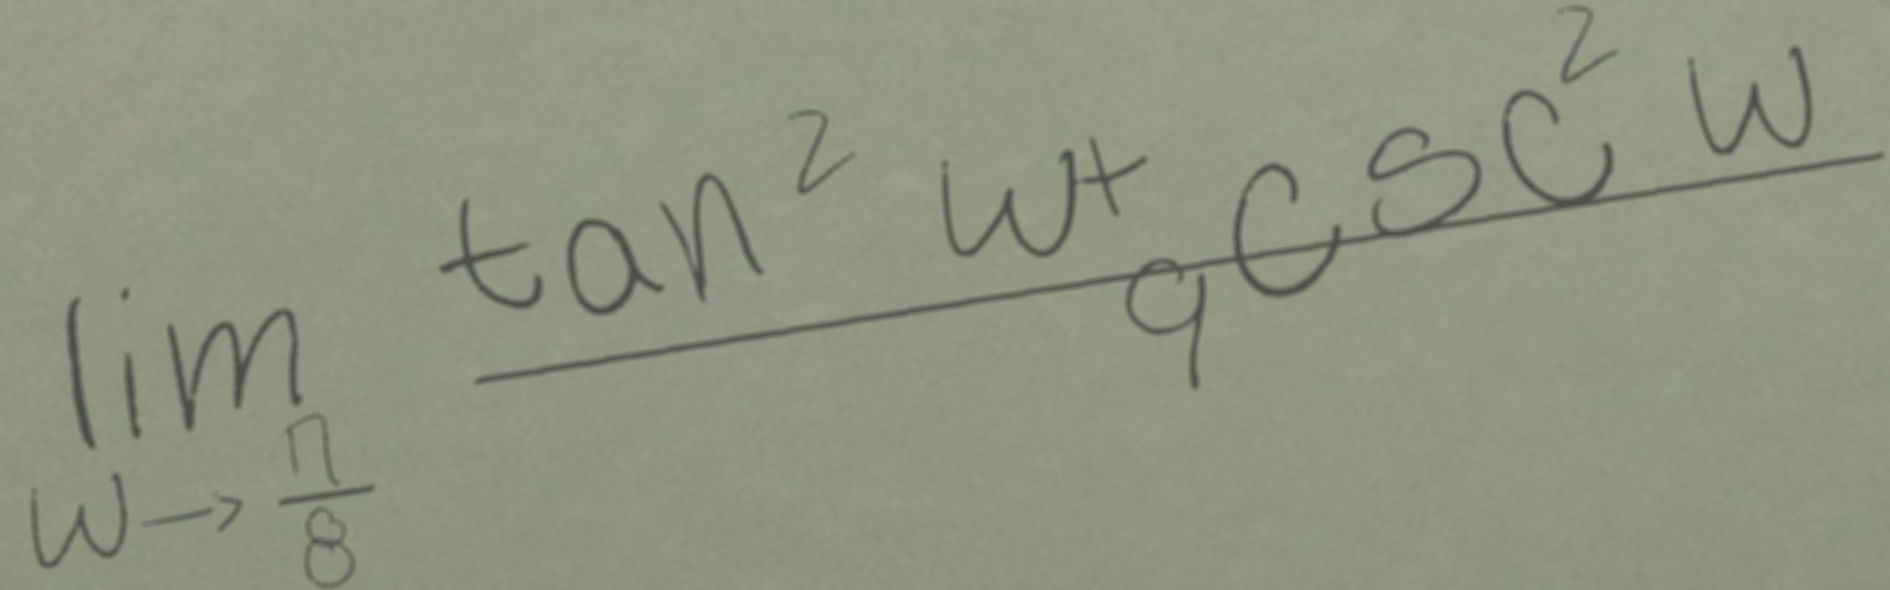 \lim_{w \to \frac{\pi}{8}} \frac{\tan^2 w + \csc^2 w}{9}